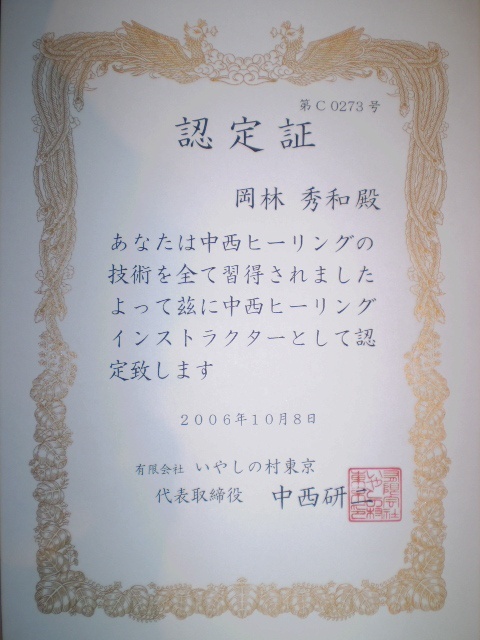 第C0273号
認定証
岡林 秀和殿
あなたは中西ヒーリングの
技術を全て習得されました
よって茲に中西ヒーリング
インストラクターとして認
定致します
2006年10月8日
有限会社 いやしの村東京
代表取締役 中西研二